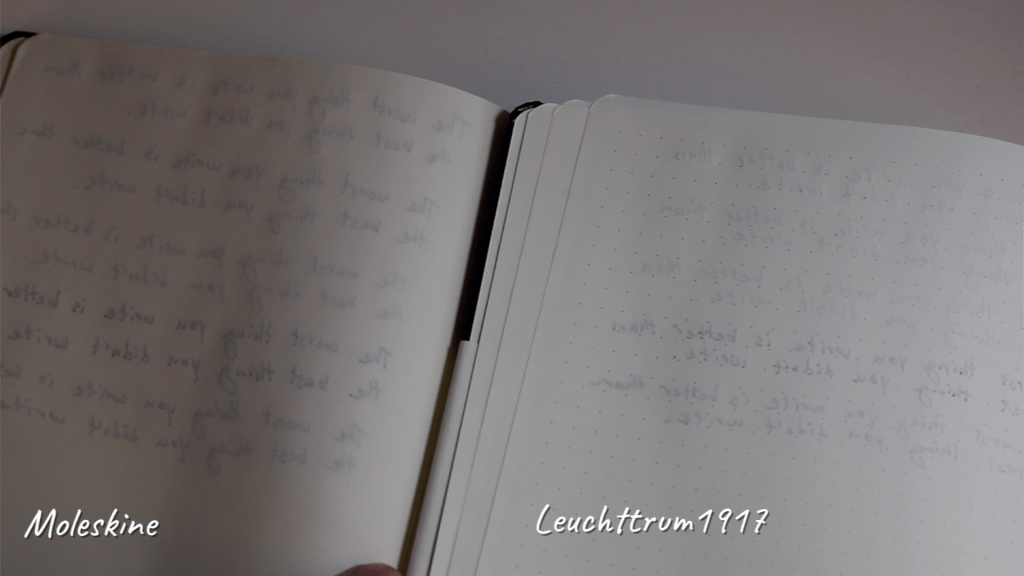 The worst thing you write is better than
the best thing you didn't write.
The worst thing you write is better than
the best thing you didn't write.
The worst thing you write is better
the best thing you didn't write.
The worst thing you write is better
the best thing you didn't write
The worst thing you write is
the best thing you didn't write
you write is better than
you didn't write.
thing you write is better than
thing you didn't write.
thing you write is better than
thing you didn't write.
thing you write is better than
thing you didn't write.
worst thing you write is better than
thing you didn't write.
Moleskine
Leuchttrum1917